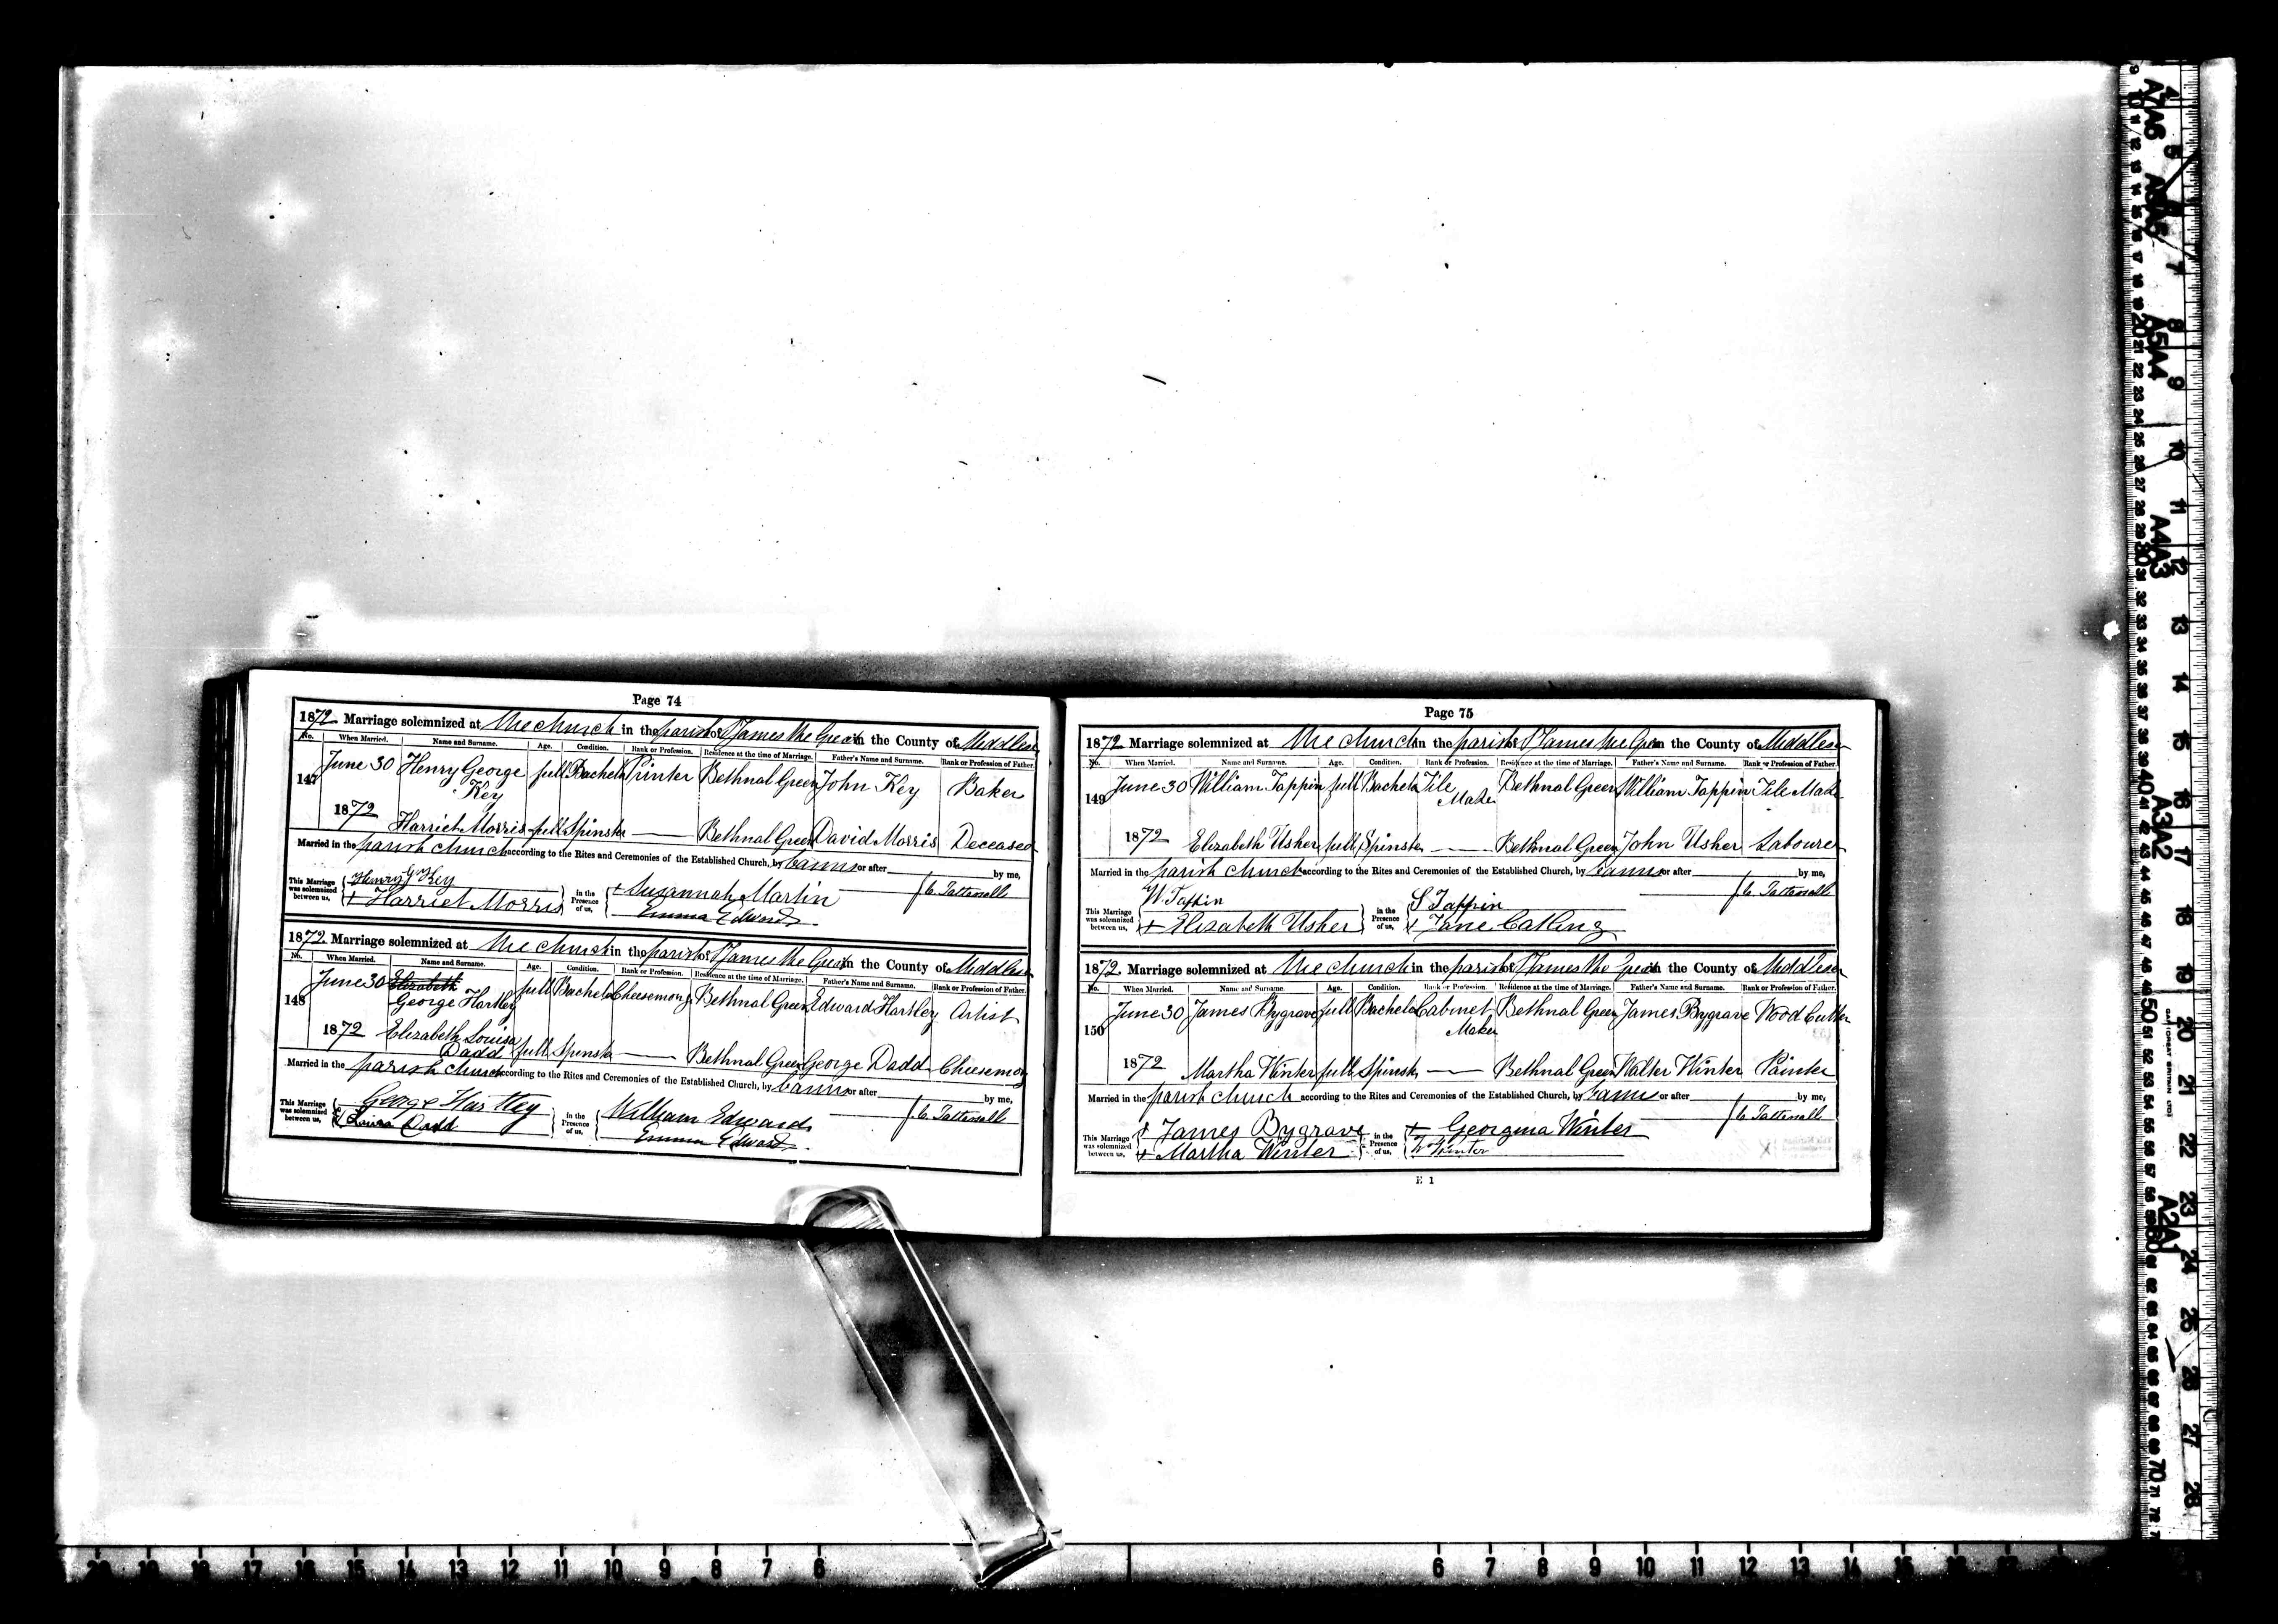 Page 74
1872 Marriage solemnized at the church in the parish of St James the Great in the County of Middlesex
No. When Married. Name and Surname. Age. Condition. Rank or Profession. Residence at the time of Marriage. Father's Name and Surname. Rank or Profession of Father.
147 June 30 Henry George Key full Bachelor Printer Bethnal Green John Key Baker
1872 Harriet Morris full Spinster Bethnal Green David Morris Deceased
Married in the parish church according to the Rites and Ceremonies of the Established Church, by banns or after by me,
This Marriage was solemnized between us, Henry G Key in the Presence of us, + Suzannah Martin J. C. Tattersall
+ Harriet Morris Emma Edwards
1872. Marriage solemnized at the church in the parish of St James the Great in the County of Middlesex
No. When Married. Name and Surname. Age. Condition. Rank or Profession. Residence at the time of Marriage. Father's Name and Surname. Rank or Profession of Father.
148 June 30 Elizabeth George Hartley full Bachelor Cheesemong Bethnal Green Edward Hartley Artist
1872 Elizabeth Louisa Dadd full Spinster Bethnal Green George Dadd Cheesemong
Married in the parish church according to the Rites and Ceremonies of the Established Church, by banns or after by me,
This Marriage was solemnized between us, George Hartley in the Presence of us, William Edwards J. C. Tattersall
Louisa Dadd Emma Edwards
Page 75
1872 Marriage solemnized at the church in the parish of St James the Great in the County of Middlesex
No. When Married. Name and Surname. Age. Condition. Rank or Profession. Residence at the time of Marriage. Father's Name and Surname. Rank or Profession of Father.
149 June 30 William Tappin full Bachelor Tile Maker Bethnal Green William Tappin Tile Maker
1872 Elizabeth Usher full Spinster Bethnal Green John Usher Labourer
Married in the parish church according to the Rites and Ceremonies of the Established Church, by banns or after by me,
This Marriage was solemnized between us, W. Tappin in the Presence of us, S Tappin J. C. Tattersall
+ Elizabeth Usher + Jane Catling
1872. Marriage solemnized at the church in the parish of St James the Great in the County of Middlesex
No. When Married. Name and Surname. Age. Condition. Rank or Profession. Residence at the time of Marriage. Father's Name and Surname. Rank or Profession of Father.
150 June 30 James Bygrave full Bachelor Cabinet Maker Bethnal Green James Bygrave Wood Cutter
1872 Martha Winter full Spinster Bethnal Green Walter Winter Painter
Married in the parish church according to the Rites and Ceremonies of the Established Church, by banns or after by me,
This Marriage was solemnized between us, + James Bygrave in the Presence of us, + Georgina Winter J. C. Tattersall
+ Martha Winter W Winter
E 1